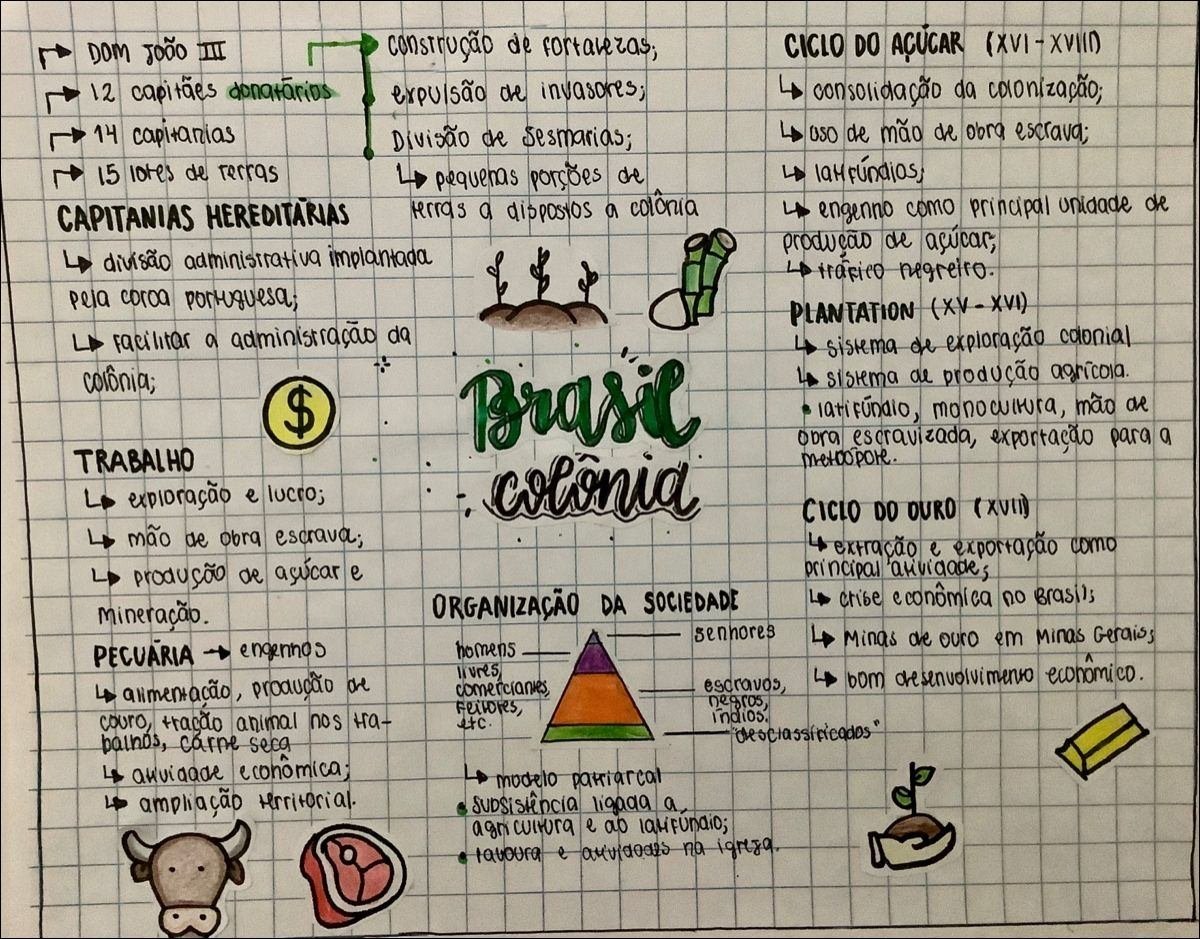 DOM JOÃO III
12 capitães donatários
14 capitanias
15 lotes de terras
CAPITANIAS HEREDITÁRIAS
divisão administrativa implantada
pela coroa portuguesa;
facilitar a administração da
colônia;
construção de fortalezas;
expulsão de invasores;
Divisão de Sesmarias;
pequenas porções de
terras a dispostos a colônia
TRABALHO
exploração e lucro;
mão de obra escrava;
produção de açúcar e
mineração.
PECUÁRIA → engenhos
alimentação, produção de
couro, tração animal nos tra-
balhos, carne seca
atividade econômica;
ampliação territorial.
$
Brasil
colônia
ORGANIZAÇÃO DA SOCIEDADE
senhores
homens
livres,
comerciantes,
feitores,
etc.
escravos,
negros,
índios.
"desclassificados"
modelo patriarcal
• subsistência ligada a
agricultura e ao latifundio;
• lavoura e atividades na igreja.
CICLO DO AÇÚCAR (XVI - XVIII)
consolidação da colonização;
uso de mão de obra escrava;
latifúndios;
engenho como principal unidade de
produção de açúcar;
tráfico negreiro.
PLANTATION (XV - XVI)
sistema de exploração colonial
sistema de produção agrícola.
• latifúndio, monocultura, mão de
obra escravizada, exportação para a
CICLO DO OURO (XVII)
extração e exportação como
principal atividade;
crise econômica no Brasil;
Minas de ouro em Minas Gerais;
bom desenvolvimento econômico.